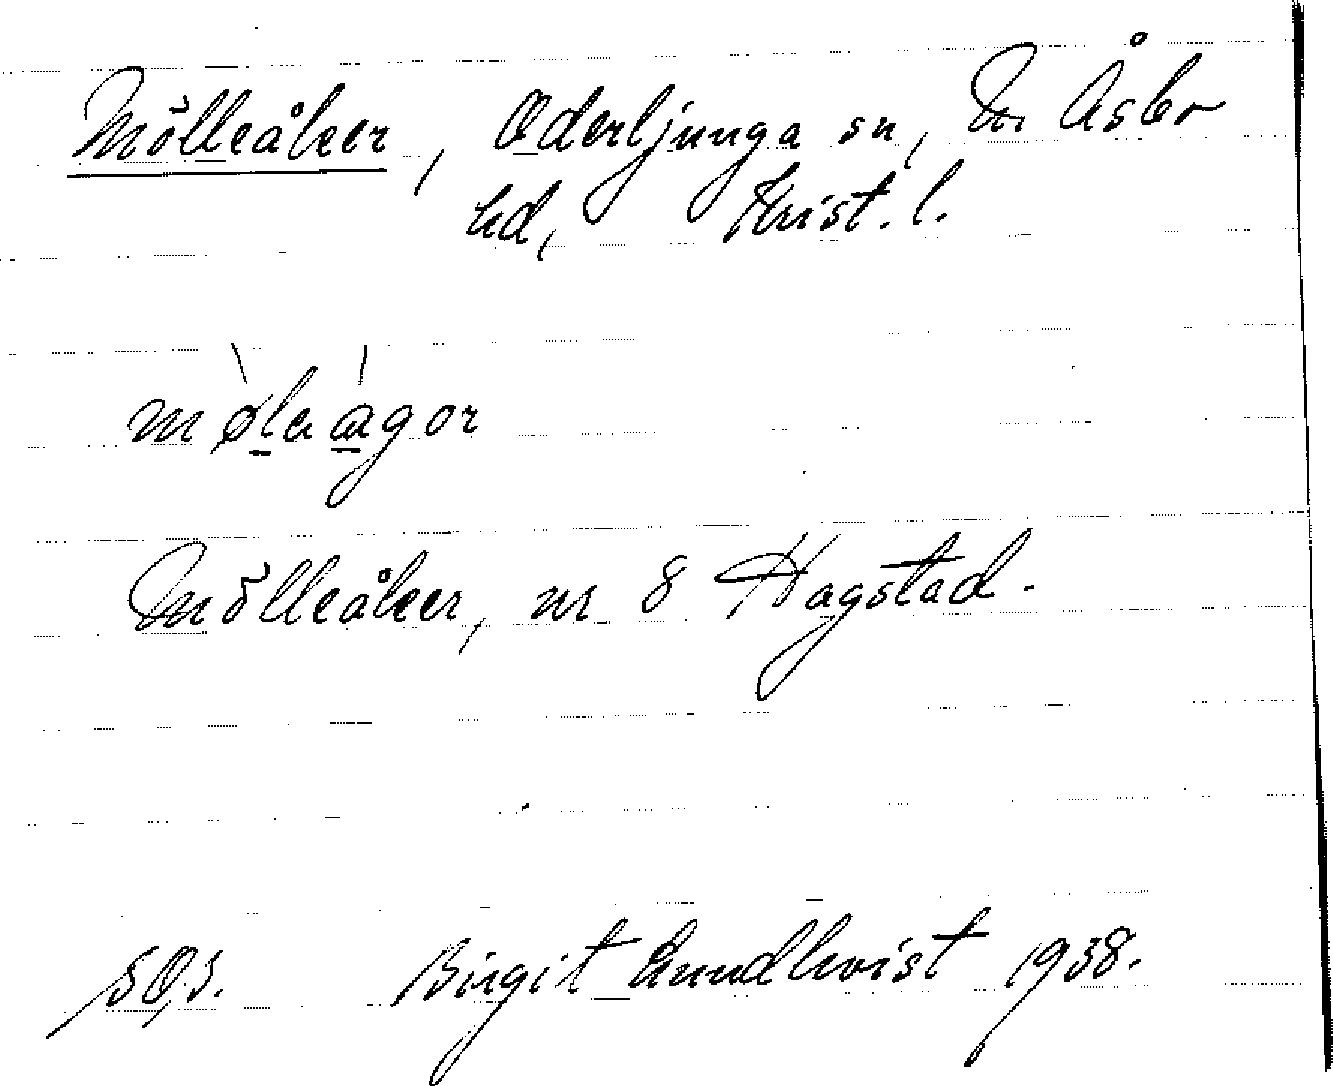 Mölleåker, Oderljunga sn, N. Åsbo
hd, Krist. l.
Mölleåker, nr 8 Hagstad.
Birgit Lundkvist 1938.